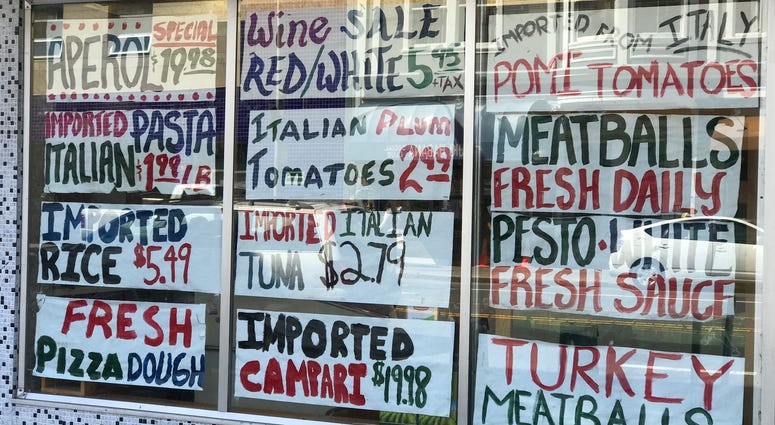 APEROL SPECIAL $19.98
IMPORTED PASTA
ITALIAN $1.99/LB
IMPORTED
RICE $5.49
FRESH
PIZZA DOUGH
Wine SALE
RED/WHITE 5.95
+TAX
ITALIAN PLUM
TOMATOES 2.49
IMPORTED ITALIAN
TUNA $2.79
IMPORTED
CAMPARI $19.98
IMPORTED FROM ITALY
POMI TOMATOES
MEATBALLS
FRESH DAILY
PESTO • WHITE
FRESH SAUCE
TURKEY
MEATBALLS